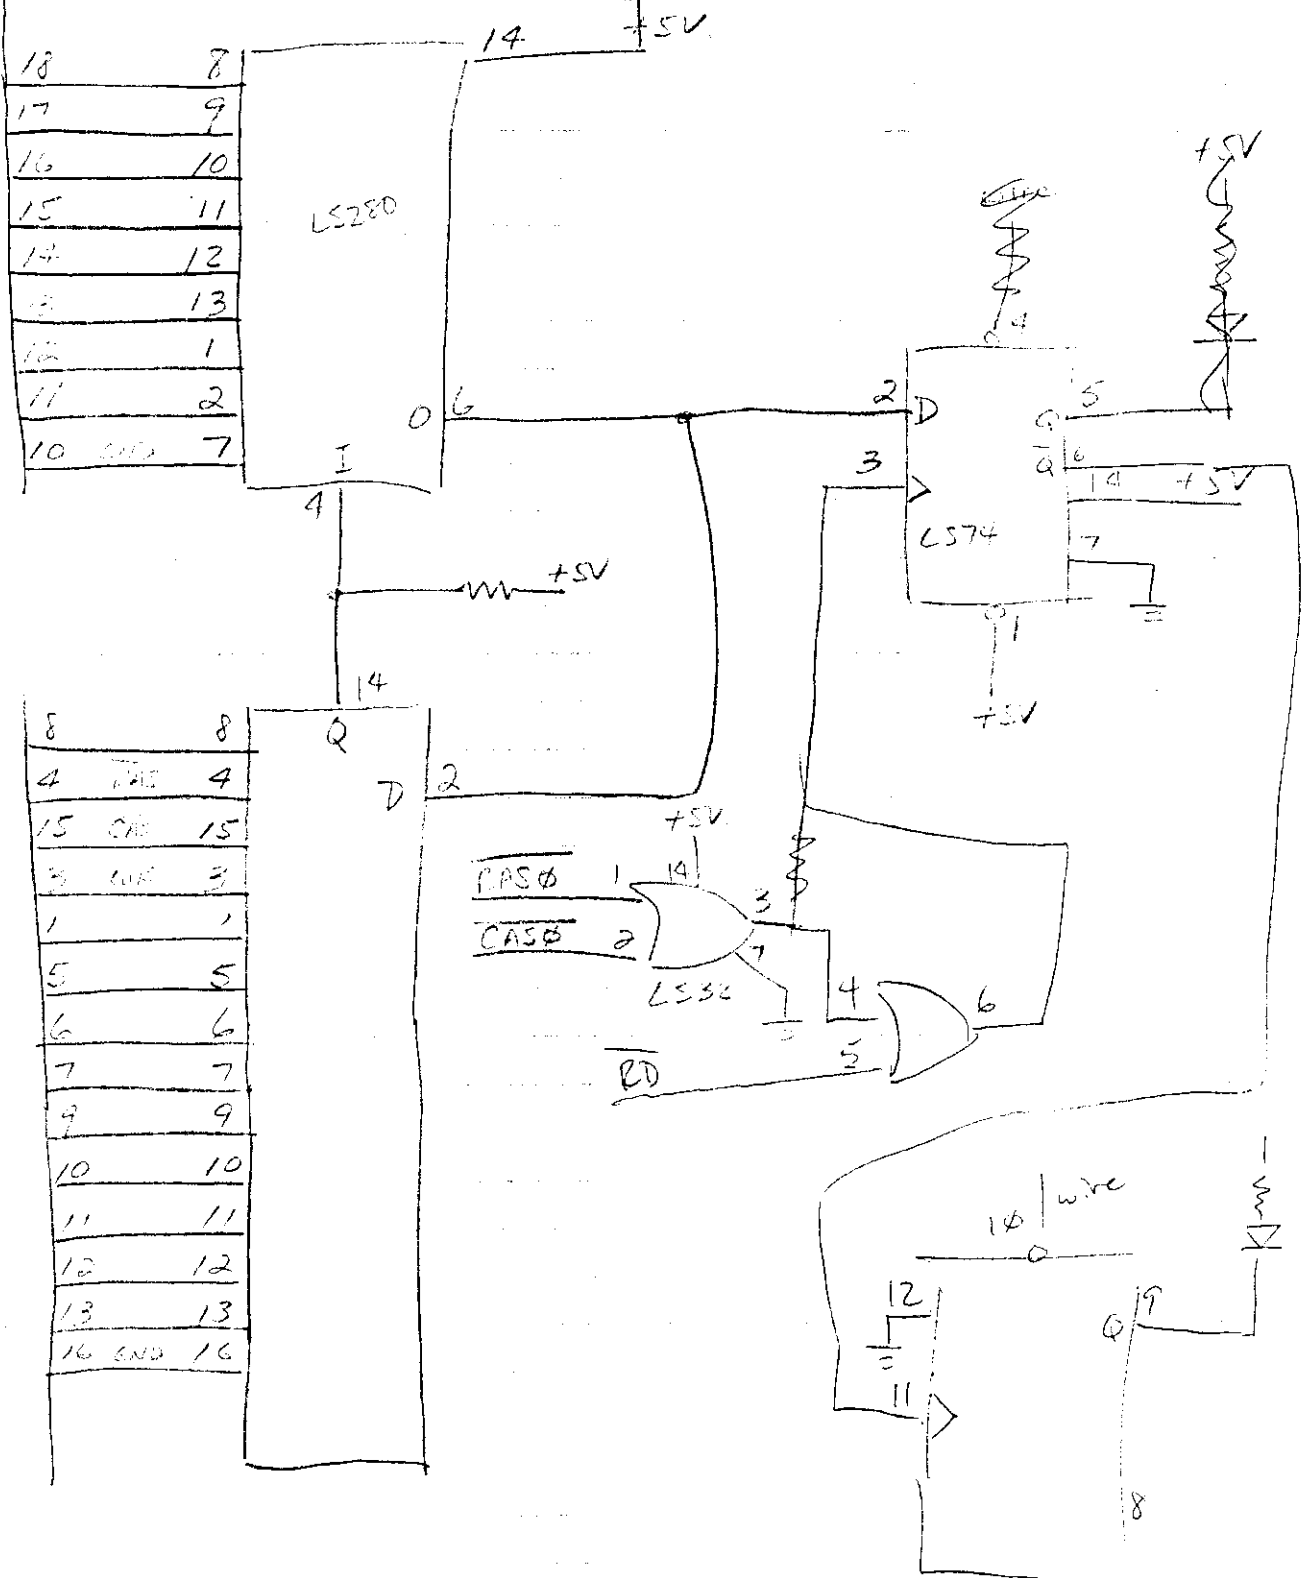 +5V
14
18 8
17 9
16 10
15 11
14 12
13
12 1
11 2
10 GND 7
LS280
O 6
I
4
+5V
+5V
4
2 D
3
Q 5
Q̅ 6
14 +5V
7
LS74
1
+5V
14
Q
D 2
8 8
4 R̅A̅S̅ 4
15 CAS 15
3 WR 3
1 1
5 5
6 6
7 7
9 9
10 10
11 11
12 12
13 13
16 GND 16
+5V
14
R̅A̅S̅Ø̅ 1
C̅A̅S̅Ø̅ 2
3
7
LS32
4
5
6
R̅D̅
1Ø wire
12
11
Q 9
8